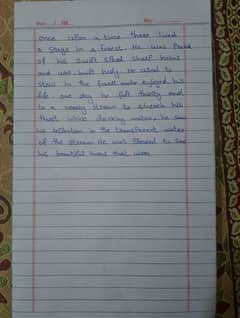 Once upon a time there lived
a stage in a forest. He was Proud
of his swift speed sharp horns
and well built body. He used to
in the forest and enjoyed his
life. one day he felt thirsty and
to a nearby stream to quench his
thirst while drinking water, he saw
his reflection in the transparent water
of the stream. He was pleased to see
his beautiful horns that were